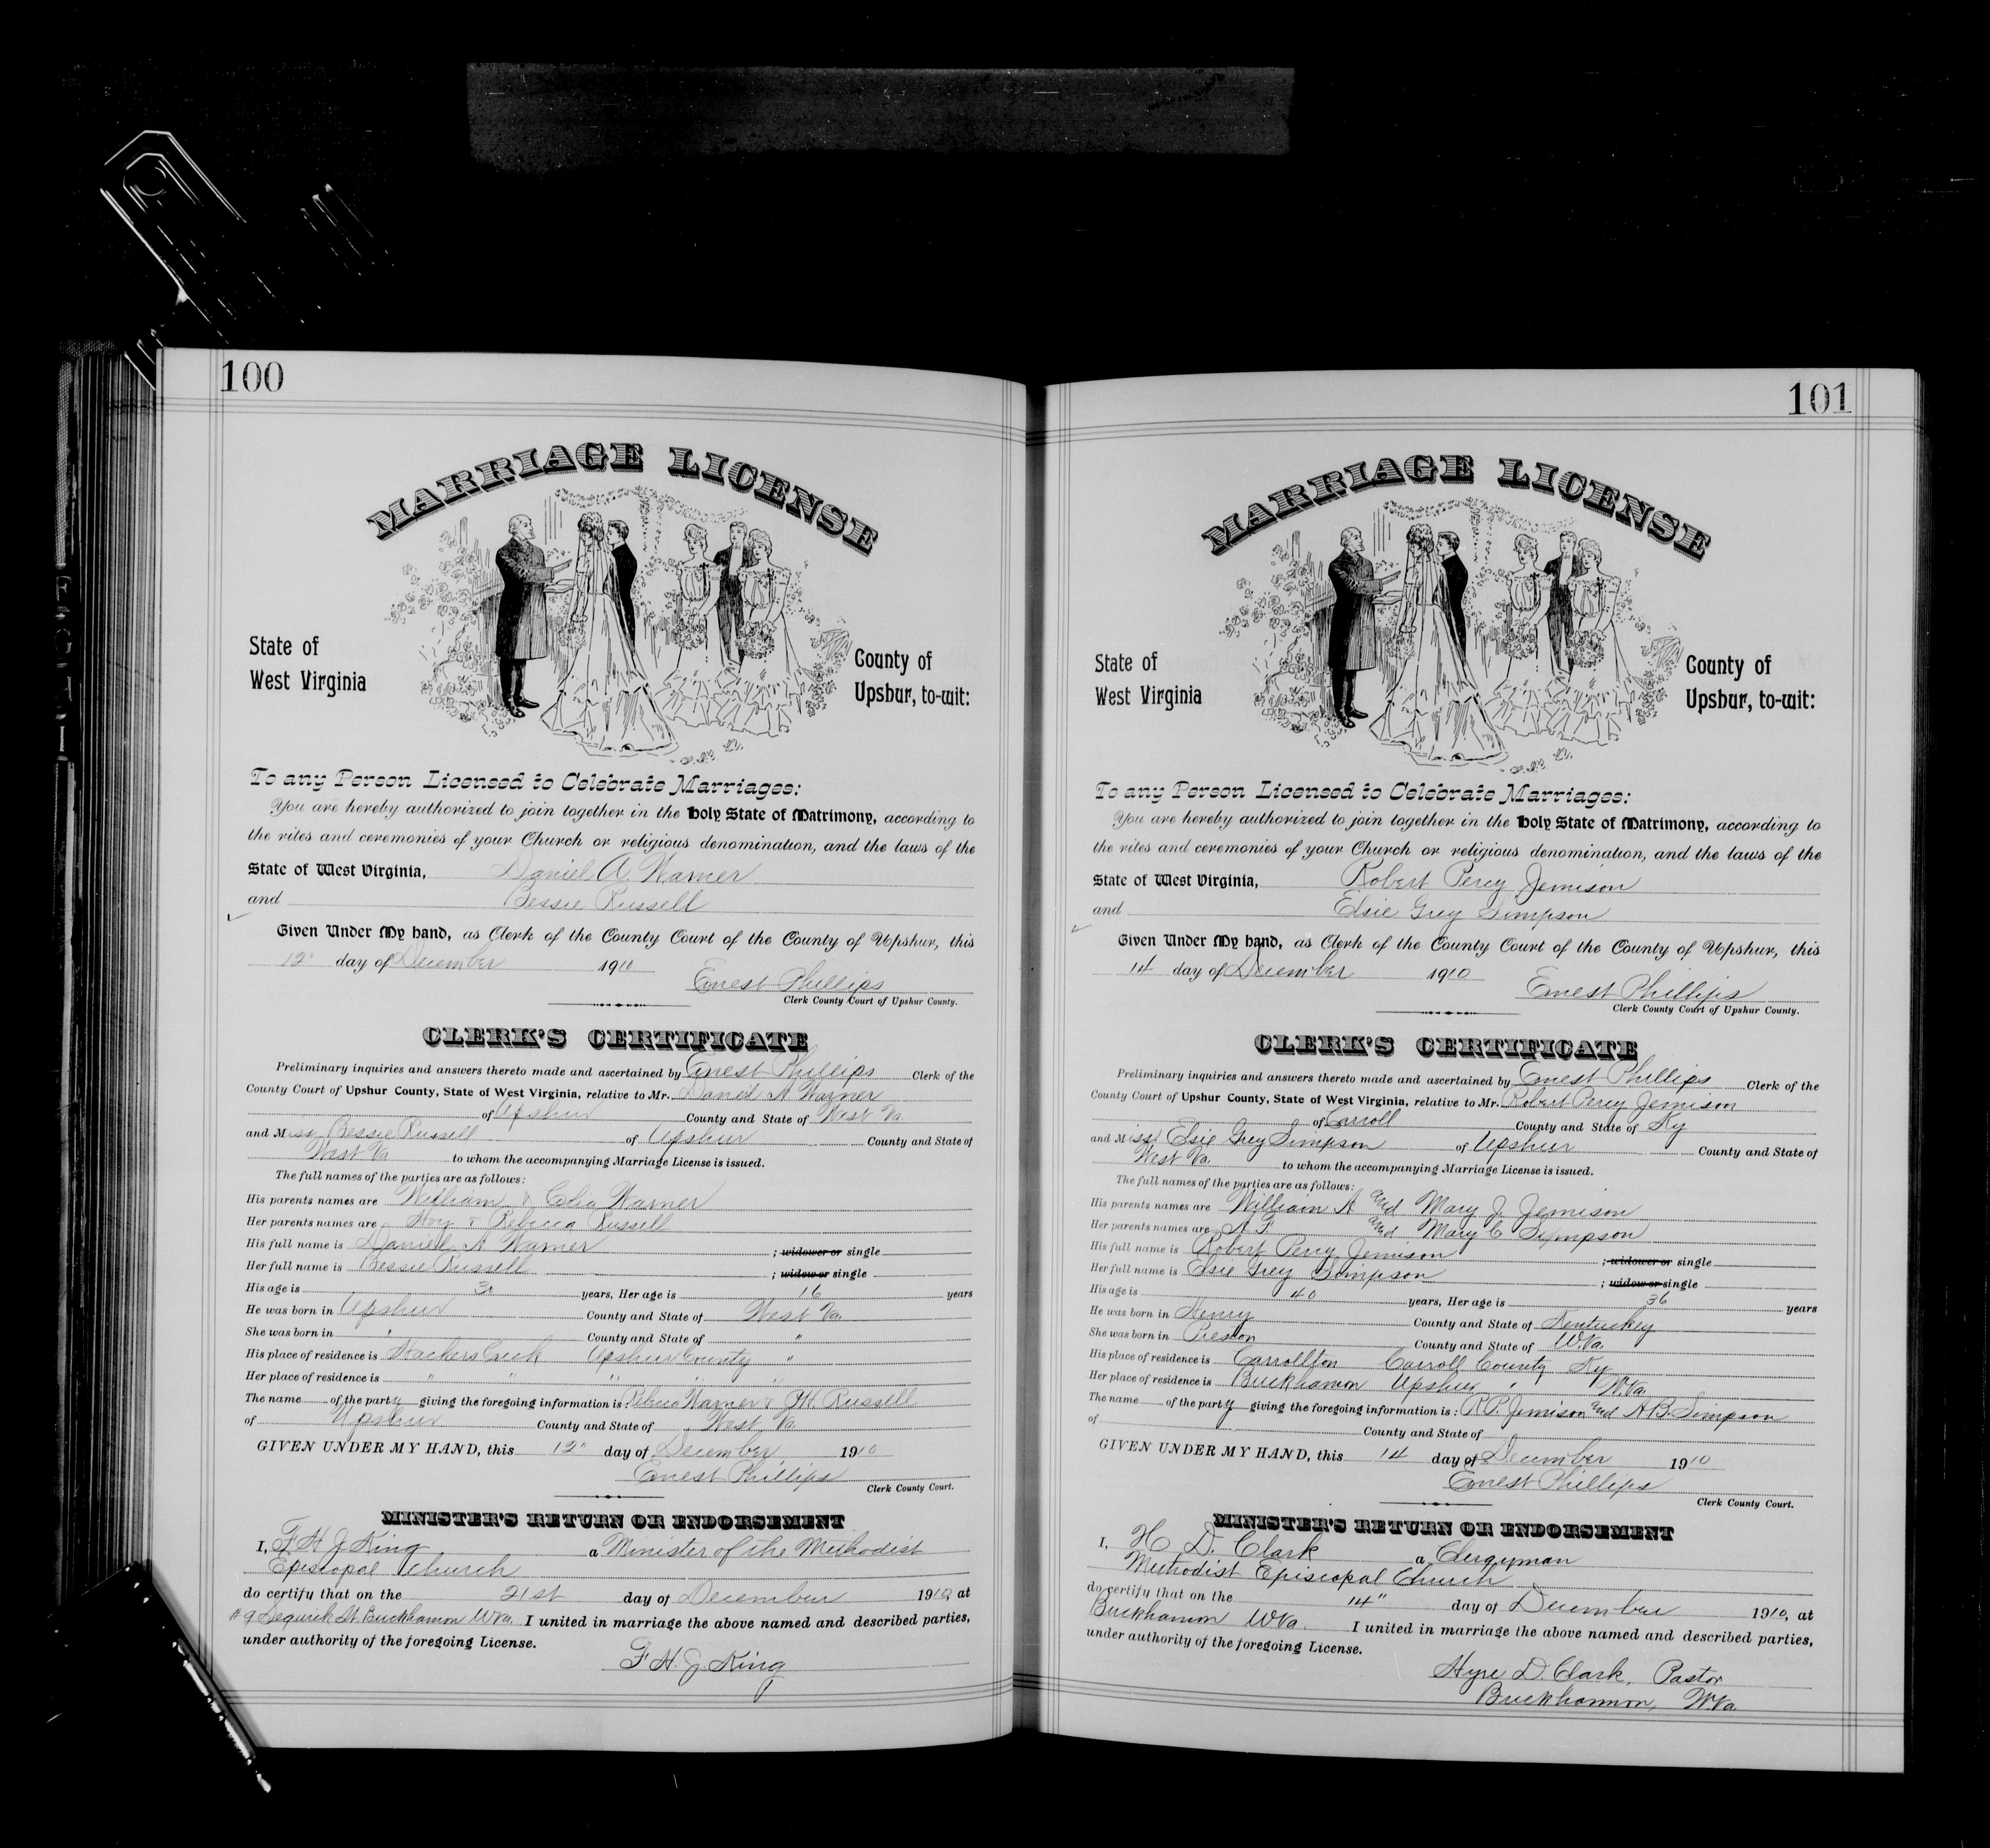 100
MARRIAGE LICENSE
State of
West Virginia
County of
Upshur, to-wit:
To any Person Licensed to Celebrate Marriages:
You are hereby authorized to join together in the Holy State of Matrimony, according to
the rites and ceremonies of your Church or religious denomination, and the laws of the
State of West Virginia, Daniel A. Warner
and Bessie Russell
Given Under My hand, as Clerk of the County Court of the County of Upshur, this
12" day of December 1910
Ernest Phillips
Clerk County Court of Upshur County.
CLERK'S CERTIFICATE
Preliminary inquiries and answers thereto made and ascertained by Ernest Phillips Clerk of the
County Court of Upshur County, State of West Virginia, relative to Mr. Daniel A Warner
of Upshur County and State of West Va.
and Miss Bessie Russell of Upshur County and State of
West Va to whom the accompanying Marriage License is issued.
The full names of the parties are as follows:
His parents names are William & Warner
Her parents names are & Rebecca Russell
His full name is Daniel A Warner ; widower or single
Her full name is Bessie Russell ; widow or single
His age is years, Her age is 16 years
He was born in Upshur County and State of West Va.
She was born in " County and State of "
His place of residence is Hackers Creek Upshur County "
Her place of residence is " " " "
The name of the party giving the foregoing information is: Rebecca Warner & Russell
of Upshur County and State of West Va
GIVEN UNDER MY HAND, this 12" day of December 1910
Ernest Phillips
Clerk County Court.
MINISTER'S RETURN OR ENDORSEMENT
I, F H J King a Minister of the Methodist
Episcopal Church
do certify that on the 21st day of December 1910, at
#9 St. Buckhannon W Va. I united in marriage the above named and described parties,
under authority of the foregoing License.
F. H. J. King
101
MARRIAGE LICENSE
State of
West Virginia
County of
Upshur, to-wit:
To any Person Licensed to Celebrate Marriages:
You are hereby authorized to join together in the Holy State of Matrimony, according to
the rites and ceremonies of your Church or religious denomination, and the laws of the
State of West Virginia, Robert Percy Jemison
and Elsie Grey Simpson
Given Under My hand, as Clerk of the County Court of the County of Upshur, this
14 day of December 1910
Ernest Phillips
Clerk County Court of Upshur County.
CLERK'S CERTIFICATE
Preliminary inquiries and answers thereto made and ascertained by Ernest Phillips Clerk of the
County Court of Upshur County, State of West Virginia, relative to Mr. Robert Percy Jemison
of Carroll County and State of Ky
and Miss Elsie Grey Simpson of Upshur County and State of
West Va. to whom the accompanying Marriage License is issued.
The full names of the parties are as follows:
His parents names are William A and Mary J. Jemison
Her parents names are A. F. and Mary C Simpson
His full name is Robert Percy Jemison ; widower or single
Her full name is Elsie Grey Simpson ; widow or single
His age is 40 years, Her age is 36 years
He was born in Henry County and State of Kentuckey
She was born in Preston County and State of W.Va.
His place of residence is Carrollton Carroll County Ky
Her place of residence is Buckhannon Upshur " W.Va.
The name of the party giving the foregoing information is: R.P. Jemison and A.B. Simpson
of County and State of
GIVEN UNDER MY HAND, this 14 day of December 1910
Ernest Phillips
Clerk County Court.
MINISTER'S RETURN OR ENDORSEMENT
I, H. D. Clark a Clergyman
Methodist Episcopal Church
do certify that on the 14" day of December 1910, at
Buckhannon W Va. I united in marriage the above named and described parties,
under authority of the foregoing License.
Hyre D. Clark, Pastor
Buckhannon, W.Va.